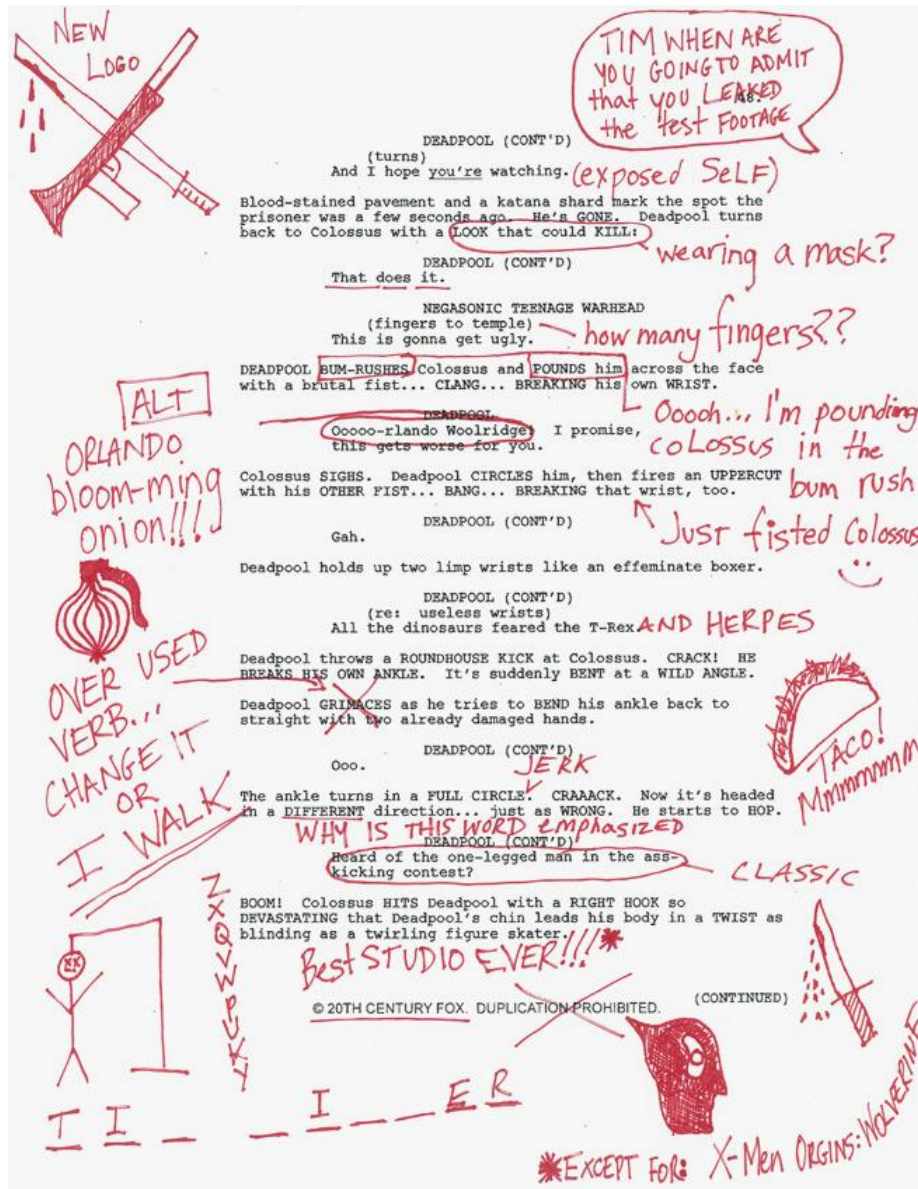 NEW
LOGO
TIM WHEN ARE
YOU GOING TO ADMIT
that you LEAKED
the test FOOTAGE
48.
DEADPOOL (CONT'D)
(turns)
And I hope you're watching.
(exposed SeLF)
Blood-stained pavement and a katana shard mark the spot the
prisoner was a few seconds ago. He's GONE. Deadpool turns
back to Colossus with a LOOK that could KILL:
wearing a mask?
DEADPOOL (CONT'D)
That does it.
NEGASONIC TEENAGE WARHEAD
(fingers to temple)
This is gonna get ugly.
how many fingers??
DEADPOOL BUM-RUSHES Colossus and POUNDS him across the face
with a brutal fist... CLANG... BREAKING his own WRIST.
ALT
ORLANDO
bloom-ming
onion!!!
DEADPOOL
Ooooo-rlando Woolridge! I promise,
this gets worse for you.
Ooooh... I'm pounding
coLossus in the
bum rush
Colossus SIGHS. Deadpool CIRCLES him, then fires an UPPERCUT
with his OTHER FIST... BANG... BREAKING that wrist, too.
Just fisted Colossus
DEADPOOL (CONT'D)
Gah.
Deadpool holds up two limp wrists like an effeminate boxer.
DEADPOOL (CONT'D)
(re: useless wrists)
All the dinosaurs feared the T-Rex.
AND HERPES
OVER USED
VERB...
CHANGE IT
OR
I WALK
Deadpool throws a ROUNDHOUSE KICK at Colossus. CRACK! HE
BREAKS HIS OWN ANKLE. It's suddenly BENT at a WILD ANGLE.
Deadpool GRIMACES as he tries to BEND his ankle back to
straight with two already damaged hands.
TACO!
Mmmmmmm
DEADPOOL (CONT'D)
Ooo.
JERK
The ankle turns in a FULL CIRCLE. CRAAACK. Now it's headed
in a DIFFERENT direction... just as WRONG. He starts to HOP.
WHY IS THIS WORD emphasized
DEADPOOL (CONT'D)
Heard of the one-legged man in the ass-
kicking contest?
CLASSIC
BOOM! Colossus HITS Deadpool with a RIGHT HOOK so
DEVASTATING that Deadpool's chin leads his body in a TWIST as
blinding as a twirling figure skater.
Best STUDIO EVER!!!*
(CONTINUED)
© 20TH CENTURY FOX. DUPLICATION PROHIBITED.
ZXQVWPUKY
T I _ _ I _ _ E R
*EXCEPT FOR: X-Men ORGINS: WOLVERINE